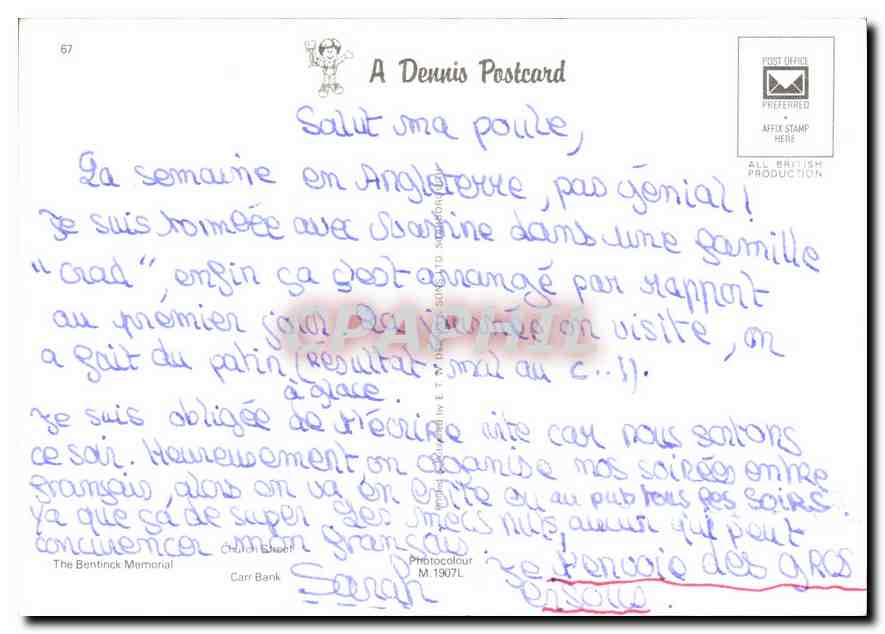 67
A Dennis Postcard
POST OFFICE
PREFERRED
AFFIX STAMP
HERE
ALL BRITISH
PRODUCTION
Salut ma poule,
La semaine en Angleterre, pas génial !
Je suis tombée avec dans une famille
"crad", enfin ça s'est arrangé par rapport
au premier jour. La journée on visite, on
a fait du patin (Résultat : mal au c...!).
à glace.
Je suis obligée de t'écrire vite car nous sortons
ce soir. Heureusement on organise nos soirées entre
français, alors on va en boîte ou au pub tous les soirs.
Ya que ça de super. Les mecs nuls, aucun qui peut
concurencer mon français.
Je t'envoie des GROS
Sarah
CPAPHIL
Church Street
The Bentinck Memorial
Carr Bank
Photocolour
M.1907L